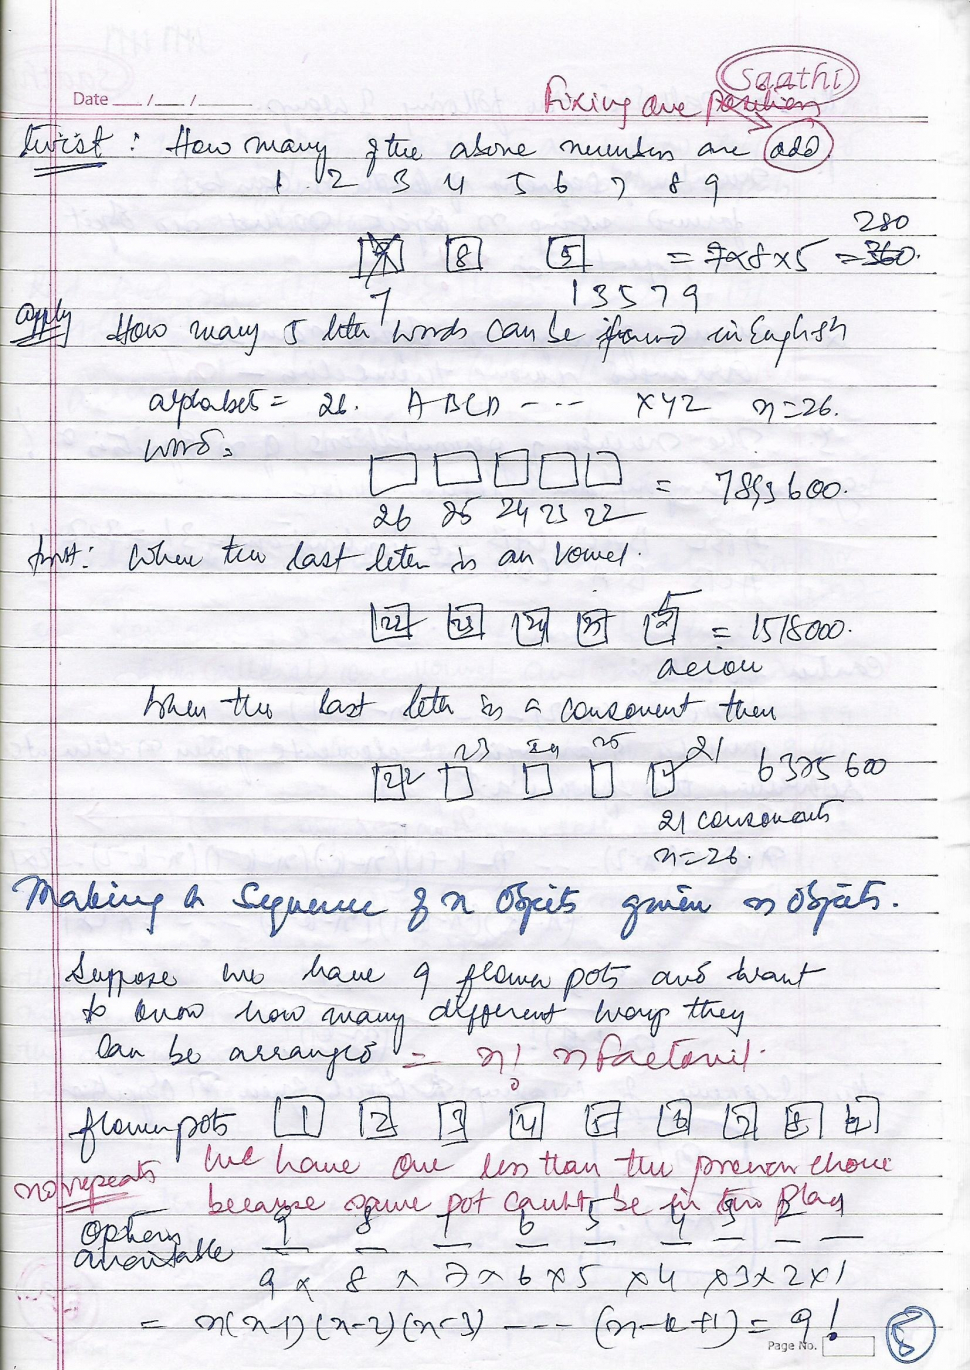 Saathi
Date __/__/____
Fixing one position
Twist : How many of the above numbers are odd.
1 2 3 4 5 6 7 8 9
280
8 5 = 7x8x5 = 360.
7 1 3 5 7 9
apply How many 5 lettr words can be found in English
alphabet = 26. A B C D --- --- X Y Z n=26.
word =
= 7893600.
26 25 24 23 22
twist: When the last letter is an vowel.
5
22 23 24 25 = 1518000.
aeiou
When the last letter is a consonent then
23 24 25 21
22 6375600
21 consonants
n=26.
Making a Sequence of n objects given n objects.
Suppose we have 9 flower pots and want
to know how many different ways they
can be arranged = n! n factorial.
flower pots 1 2 3 4 5 6 7 8 9
no repeats We have one less than the previous choice
because same pot can't be in two places
Options 9 8 7 6 5 4 3 2
available
9 x 8 x 7 x 6 x 5 x 4 x 3 x 2 x 1
= n(n-1)(n-2)(n-3) ---- (n-k+1) = 9!
Page No.
8